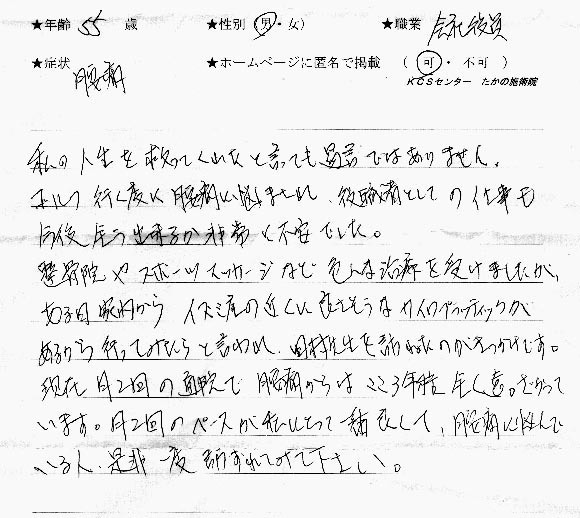 ★年齢 55 歳 ★性別 (男・女) ★職業 会社役員
★症状 腰痛 ★ホームページに匿名で掲載 (可・不可)
KCSセンター たかの施術院
私の人生を救ってくれたと言っても過言ではありません。
ゴルフ行く度に腰痛に悩まされ、後の仕事も
今後 出来るか非常に不安でした。
整骨院やスポーツマッサージなど色んな治療を受けましたが、
ある日家内から イズミ屋の近くに良さそうなカイロプラクティックが
あるから行ってみたらと言われ、先生を訪ねたのがきっかけです。
現在月2回の通院で腰痛からはここ3年程
います。月2回のペースが私にとって一番良くて、腰痛に悩んで
いる人、是非一度訪ずれてみて下さい。